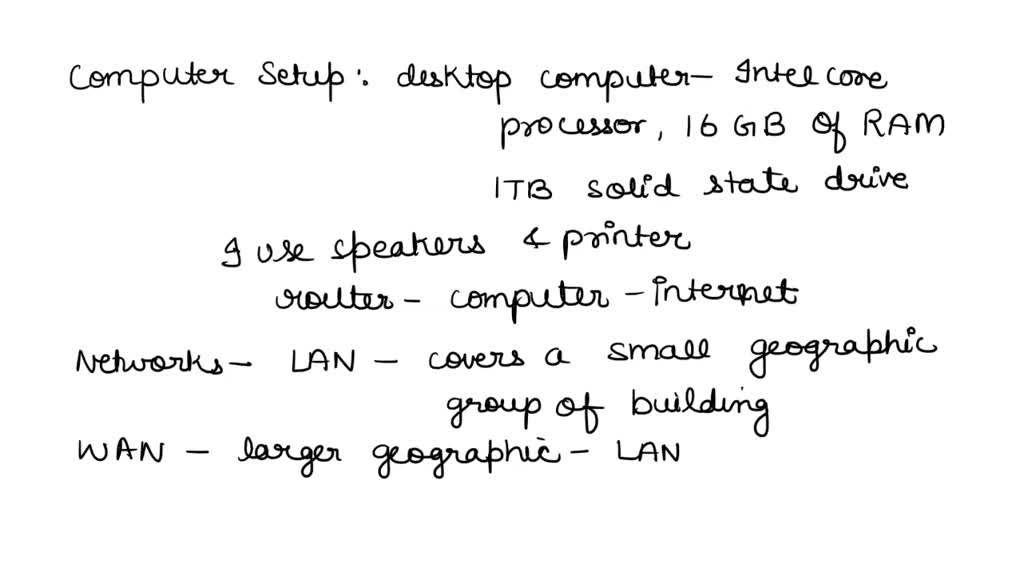 Computer Setup: desktop computer- Intel core
processor, 16 GB Of RAM
1TB solid state drive
I use speakers & printer
router - computer - internet
Networks- LAN - covers a small geographic
group of building
WAN - larger geographic - LAN